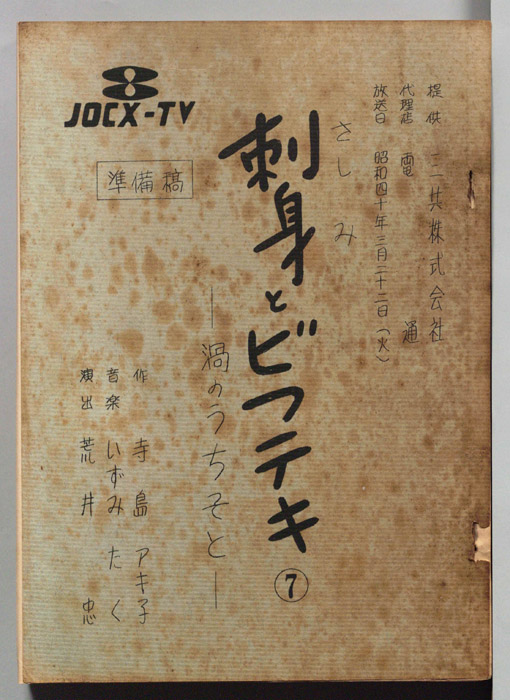 JOCX-TV
準備稿
提供 三共株式会社
代理店 電通
放送日 昭和四十年三月二十二日(火)
さしみ
刺身とビフテキ⑦
―渦のうちそと―
作 寺島アキ子
音楽 いずみたく
演出 荒井忠